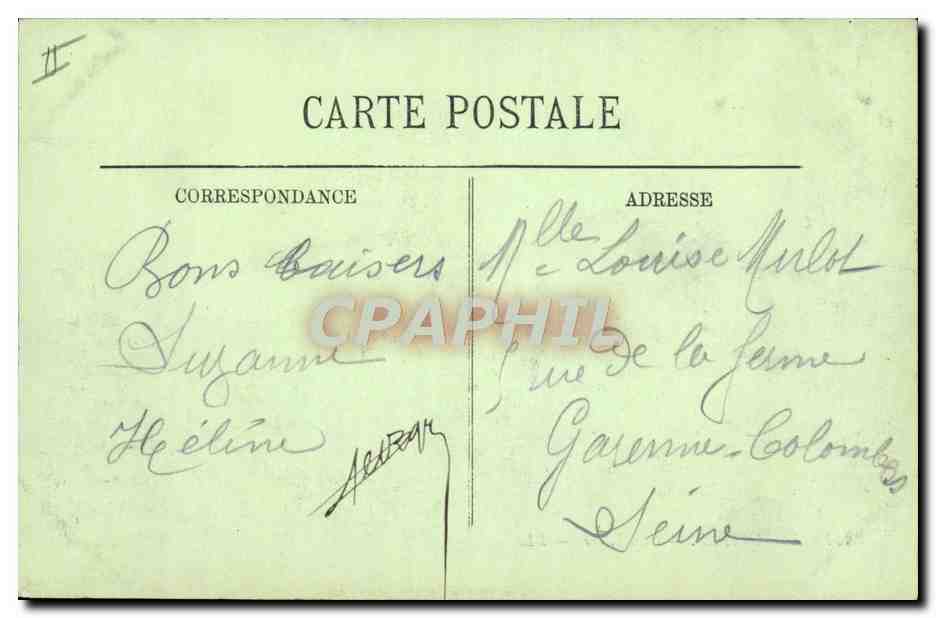 II
CARTE POSTALE
CORRESPONDANCE
Bons baisers
Suzanne
Hélène
ADRESSE
Mlle Louise Mulot
rue de la ferme
Garenne-Colombes
Seine
CPAPHIL